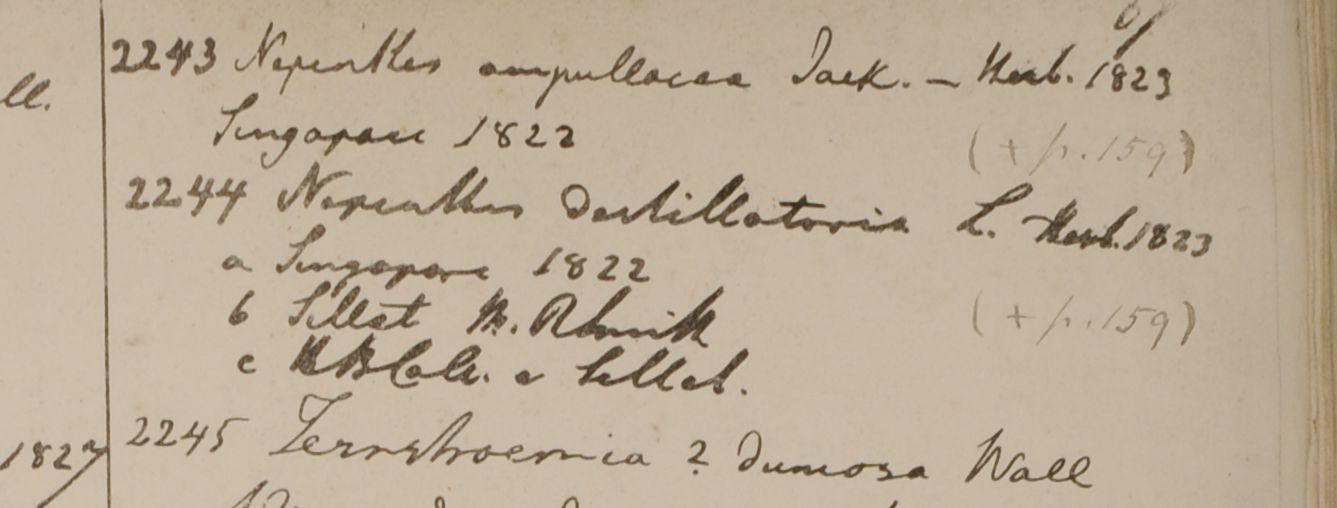 ll.
2243 Nepenthes ampullacea Jack. – Herb. 1823
Singapore 1822
(+ p. 159)
2244 Nepenthes destillatoria L. Herb. 1823
a Singapore 1822
b Sillet
(+ p. 159)
c HBCalc. e Sillet.
1827
2245 Ternstroemia ? dumosa Wall